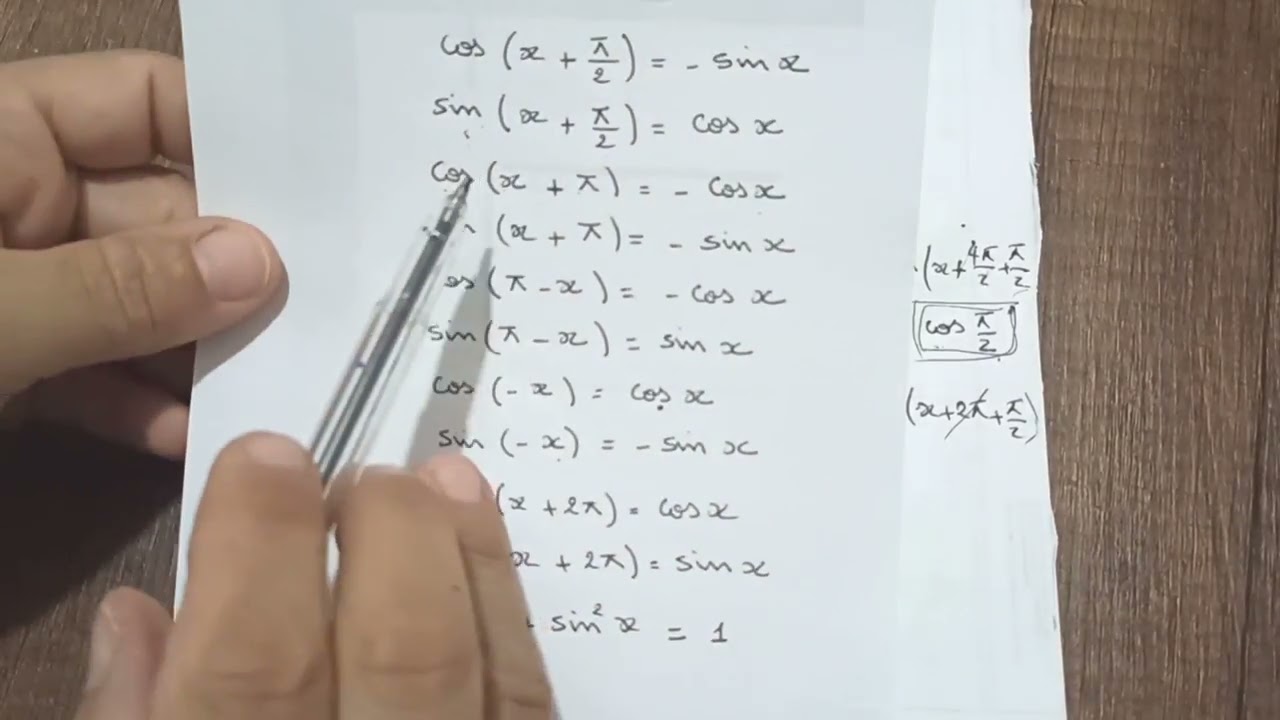 cos (x + π/2) = - sin x
sin (x + π/2) = cos x
cos (x + π) = - cos x
(x + π) = - sin x
os (π - x) = - cos x
sin (π - x) = sin x
cos (- x) = cos x
sin (- x) = - sin x
(x + 2π) = cos x
x + 2π) = sin x
sin² x = 1
(x + 4π/2 + π/2
cos π/2
(x + 2π + π/2)